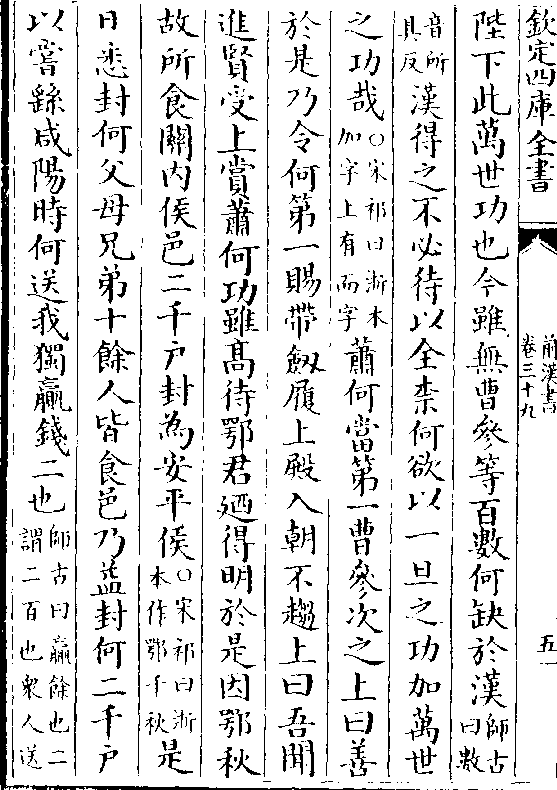 欽定四庫全書
前漢書
卷三十九
五
陛下此萬世功也今雖無曹參等百數何缺於漢師古曰數
音所具反漢得之不必待以全柰何欲以一旦之功加萬世
之功哉○宋祁曰浙本加字上有而字蕭何當第一曹參次之上曰善
於是乃令何第一賜帶劔履上殿入朝不趨上曰吾聞
進賢受上賞蕭何功雖髙待鄂君廼得明於是因鄂秋
故所食關内侯邑二千户封為安平侯○宋祁曰浙本作鄂千秋是
日悉封何父母兄弟十餘人皆食邑乃益封何二千户
以嘗繇咸陽時何送我獨贏錢二也師古曰贏餘也二謂二百也衆人送